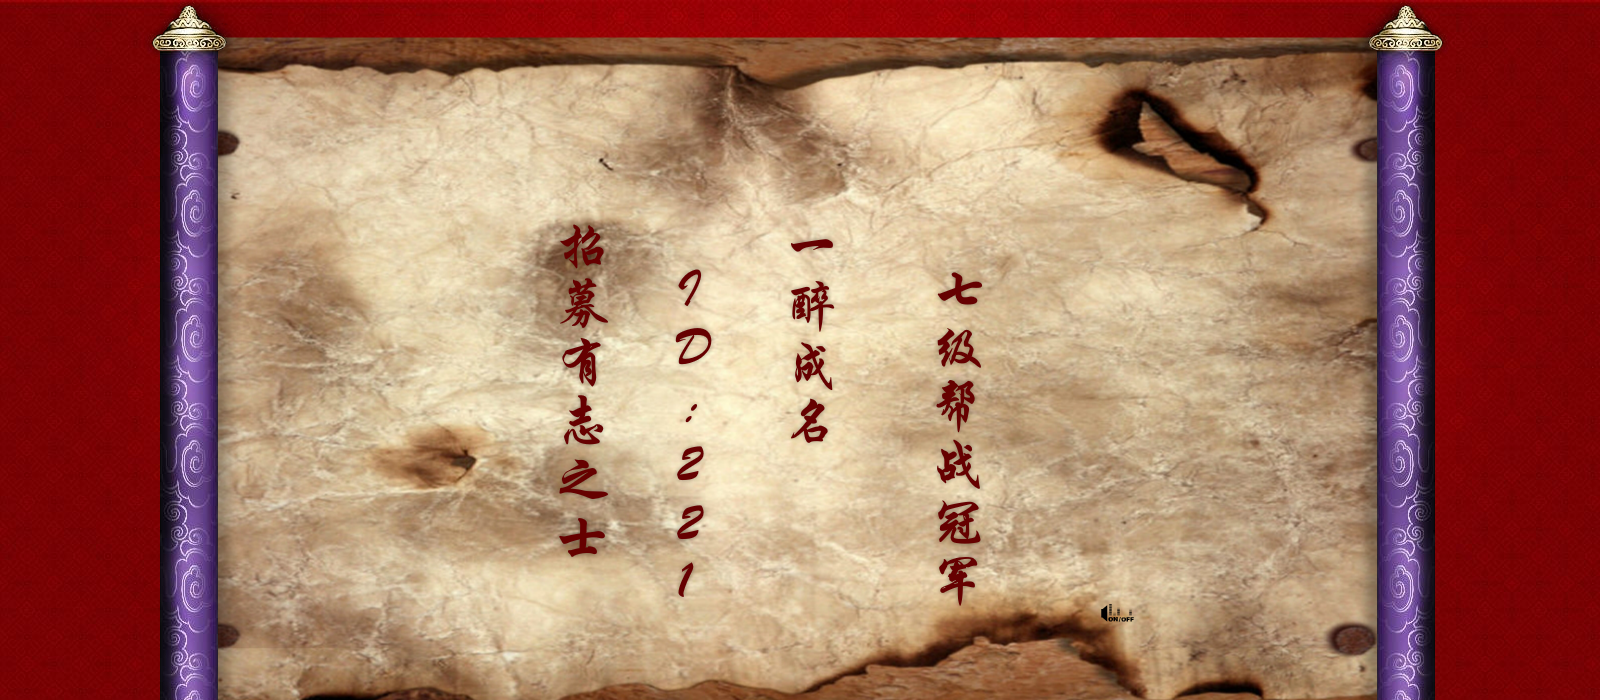 七级帮战冠军
一醉成名
ID:221
招募有志之士
ON/OFF